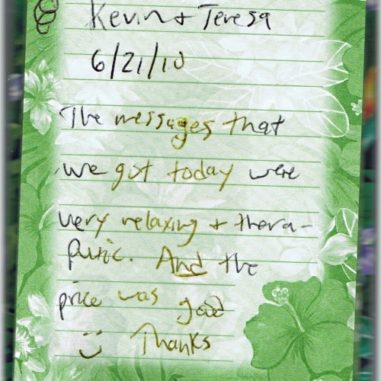 Kevin + Teresa
6/21/10
The messages that
we got today were
very relaxing + thera-
puric. And the
price was good
Thanks